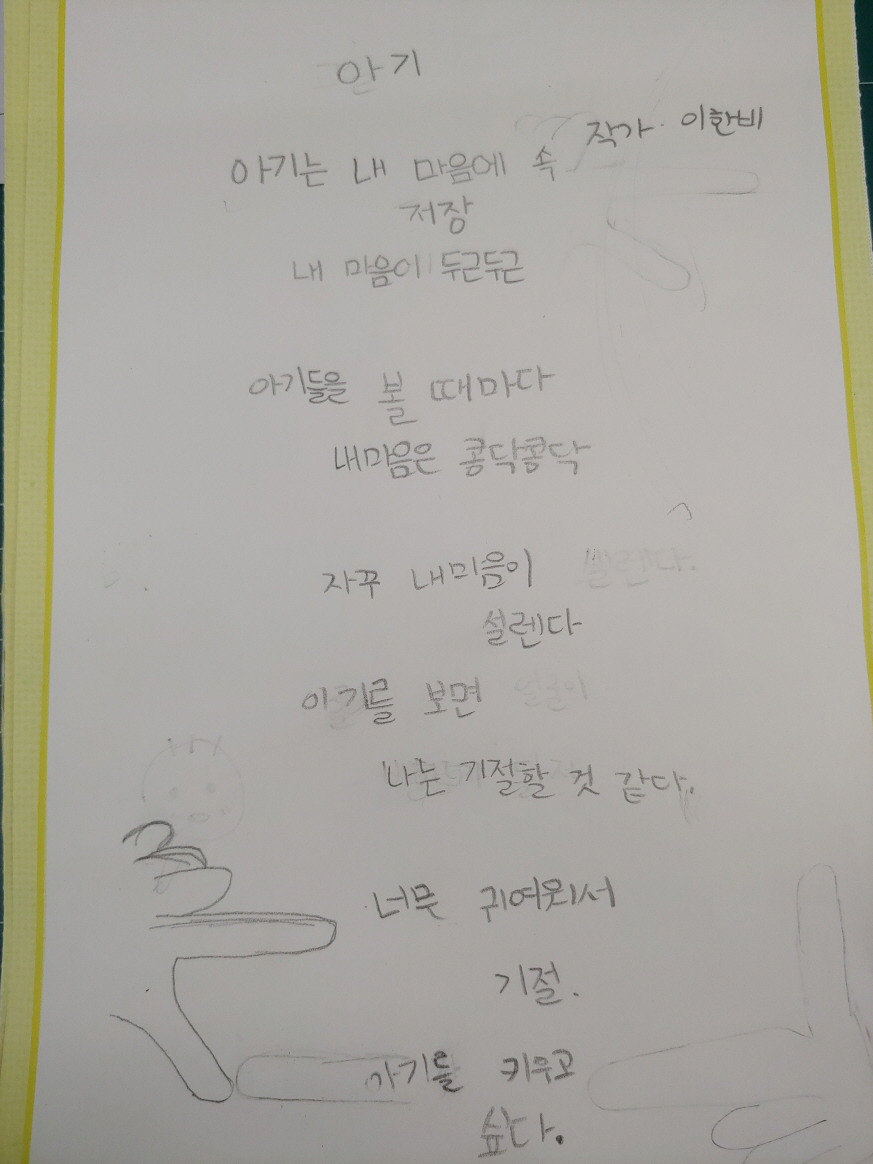 아기
작가. 이한비
아기는 내 마음에 속
저장
내 마음이 두근두근
아기들을 볼 때마다
내마음은 콩닥콩닥
자꾸 내미음이
설렌다
이기를 보면
나는 기절할 것 같다.
너무 귀여워서
기절.
아기를 키우고
싶다.